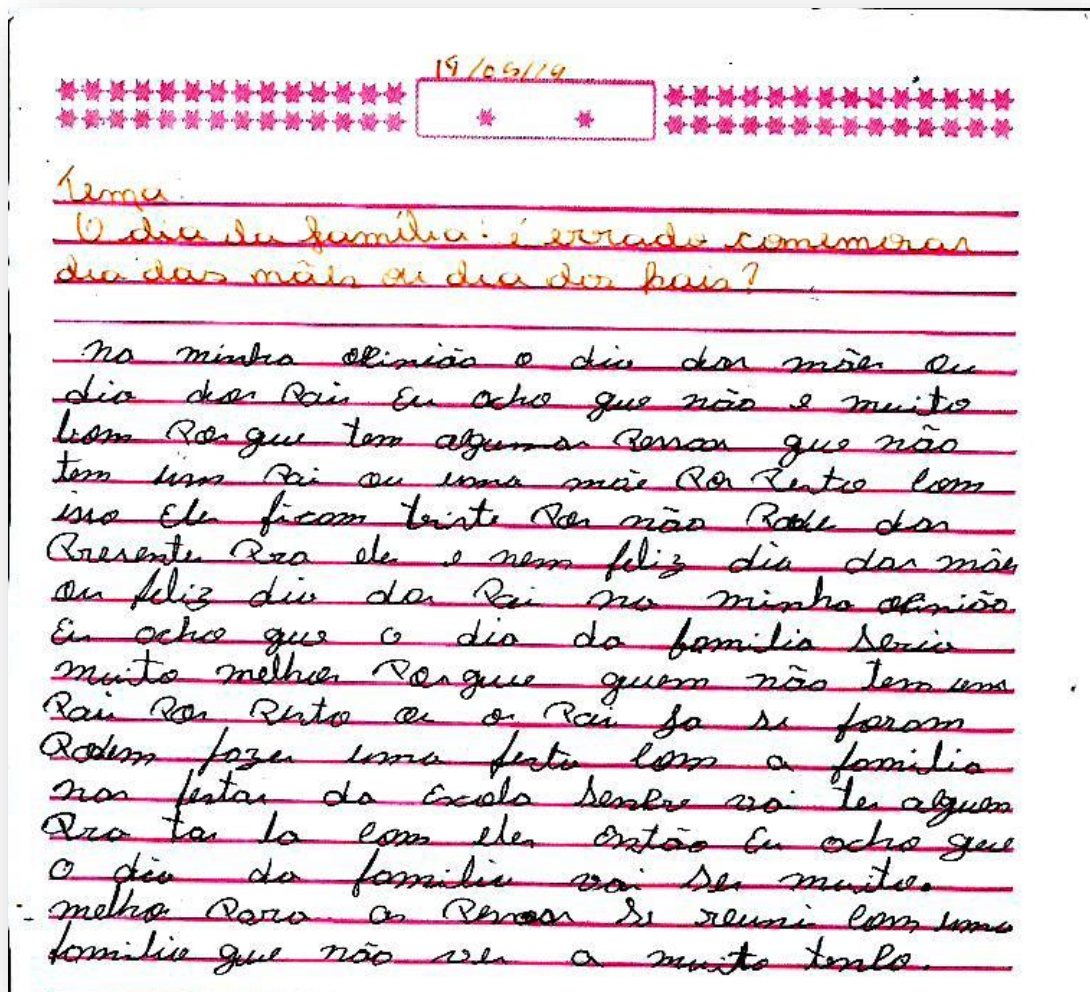 19/05/19
Tema
O dia da família: é errado comemorar
dia das mães ou dia dos pais?
na minha opinião o dia das mães ou
dia dos Pais Eu acho que não e muito
bom Por que tem algumas Pessoas que não
tem um Pai ou uma mãe Por Perto Com
isso Eles ficam triste Por não Pode dar
Presente Pra eles e nem feliz dia das mães
ou feliz dia dos Pai na minha opinião
Eu acho que o dia da familia seria
muito melhor Porque quem não tem um
Pai Por Perto ou os Pais Ja se foram
Podem fazer uma festa com a familia
nas festas da Escola senpre vai ter alguem
Pra tar la com eles então Eu acho que
o dia da familia vai ser muito.
melho Para as Pessoas se reuni com uma
familia que não ver a muito tenpo.